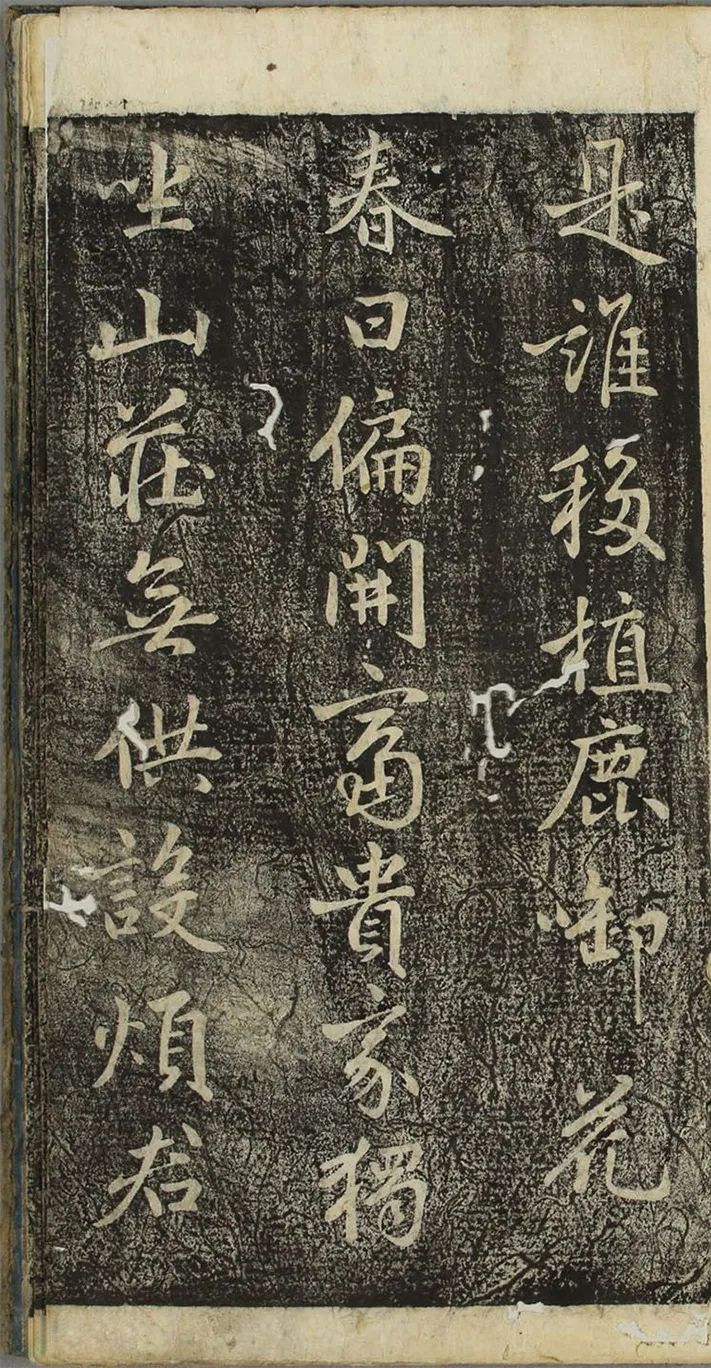 是誰移植鹿啣花
春日偏開富貴家獨
坐山莊無供設煩君